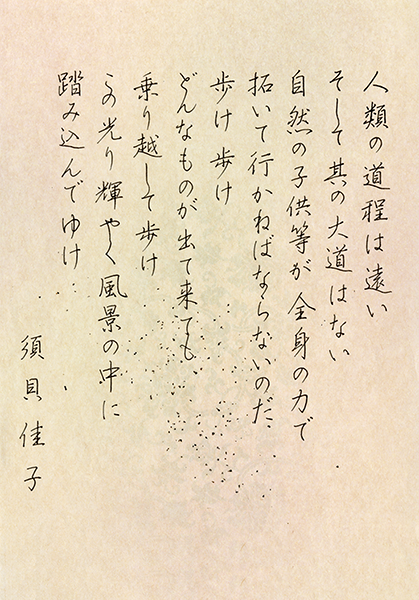 人類の道程は遠い
そして其の大道はない
自然の子供等が全身の力で
拓いて行かねばならないのだ
歩け歩け
どんなものが出て来ても
乗り越して歩け
この光り輝やく風景の中に
踏み込んでゆけ
須貝佳子